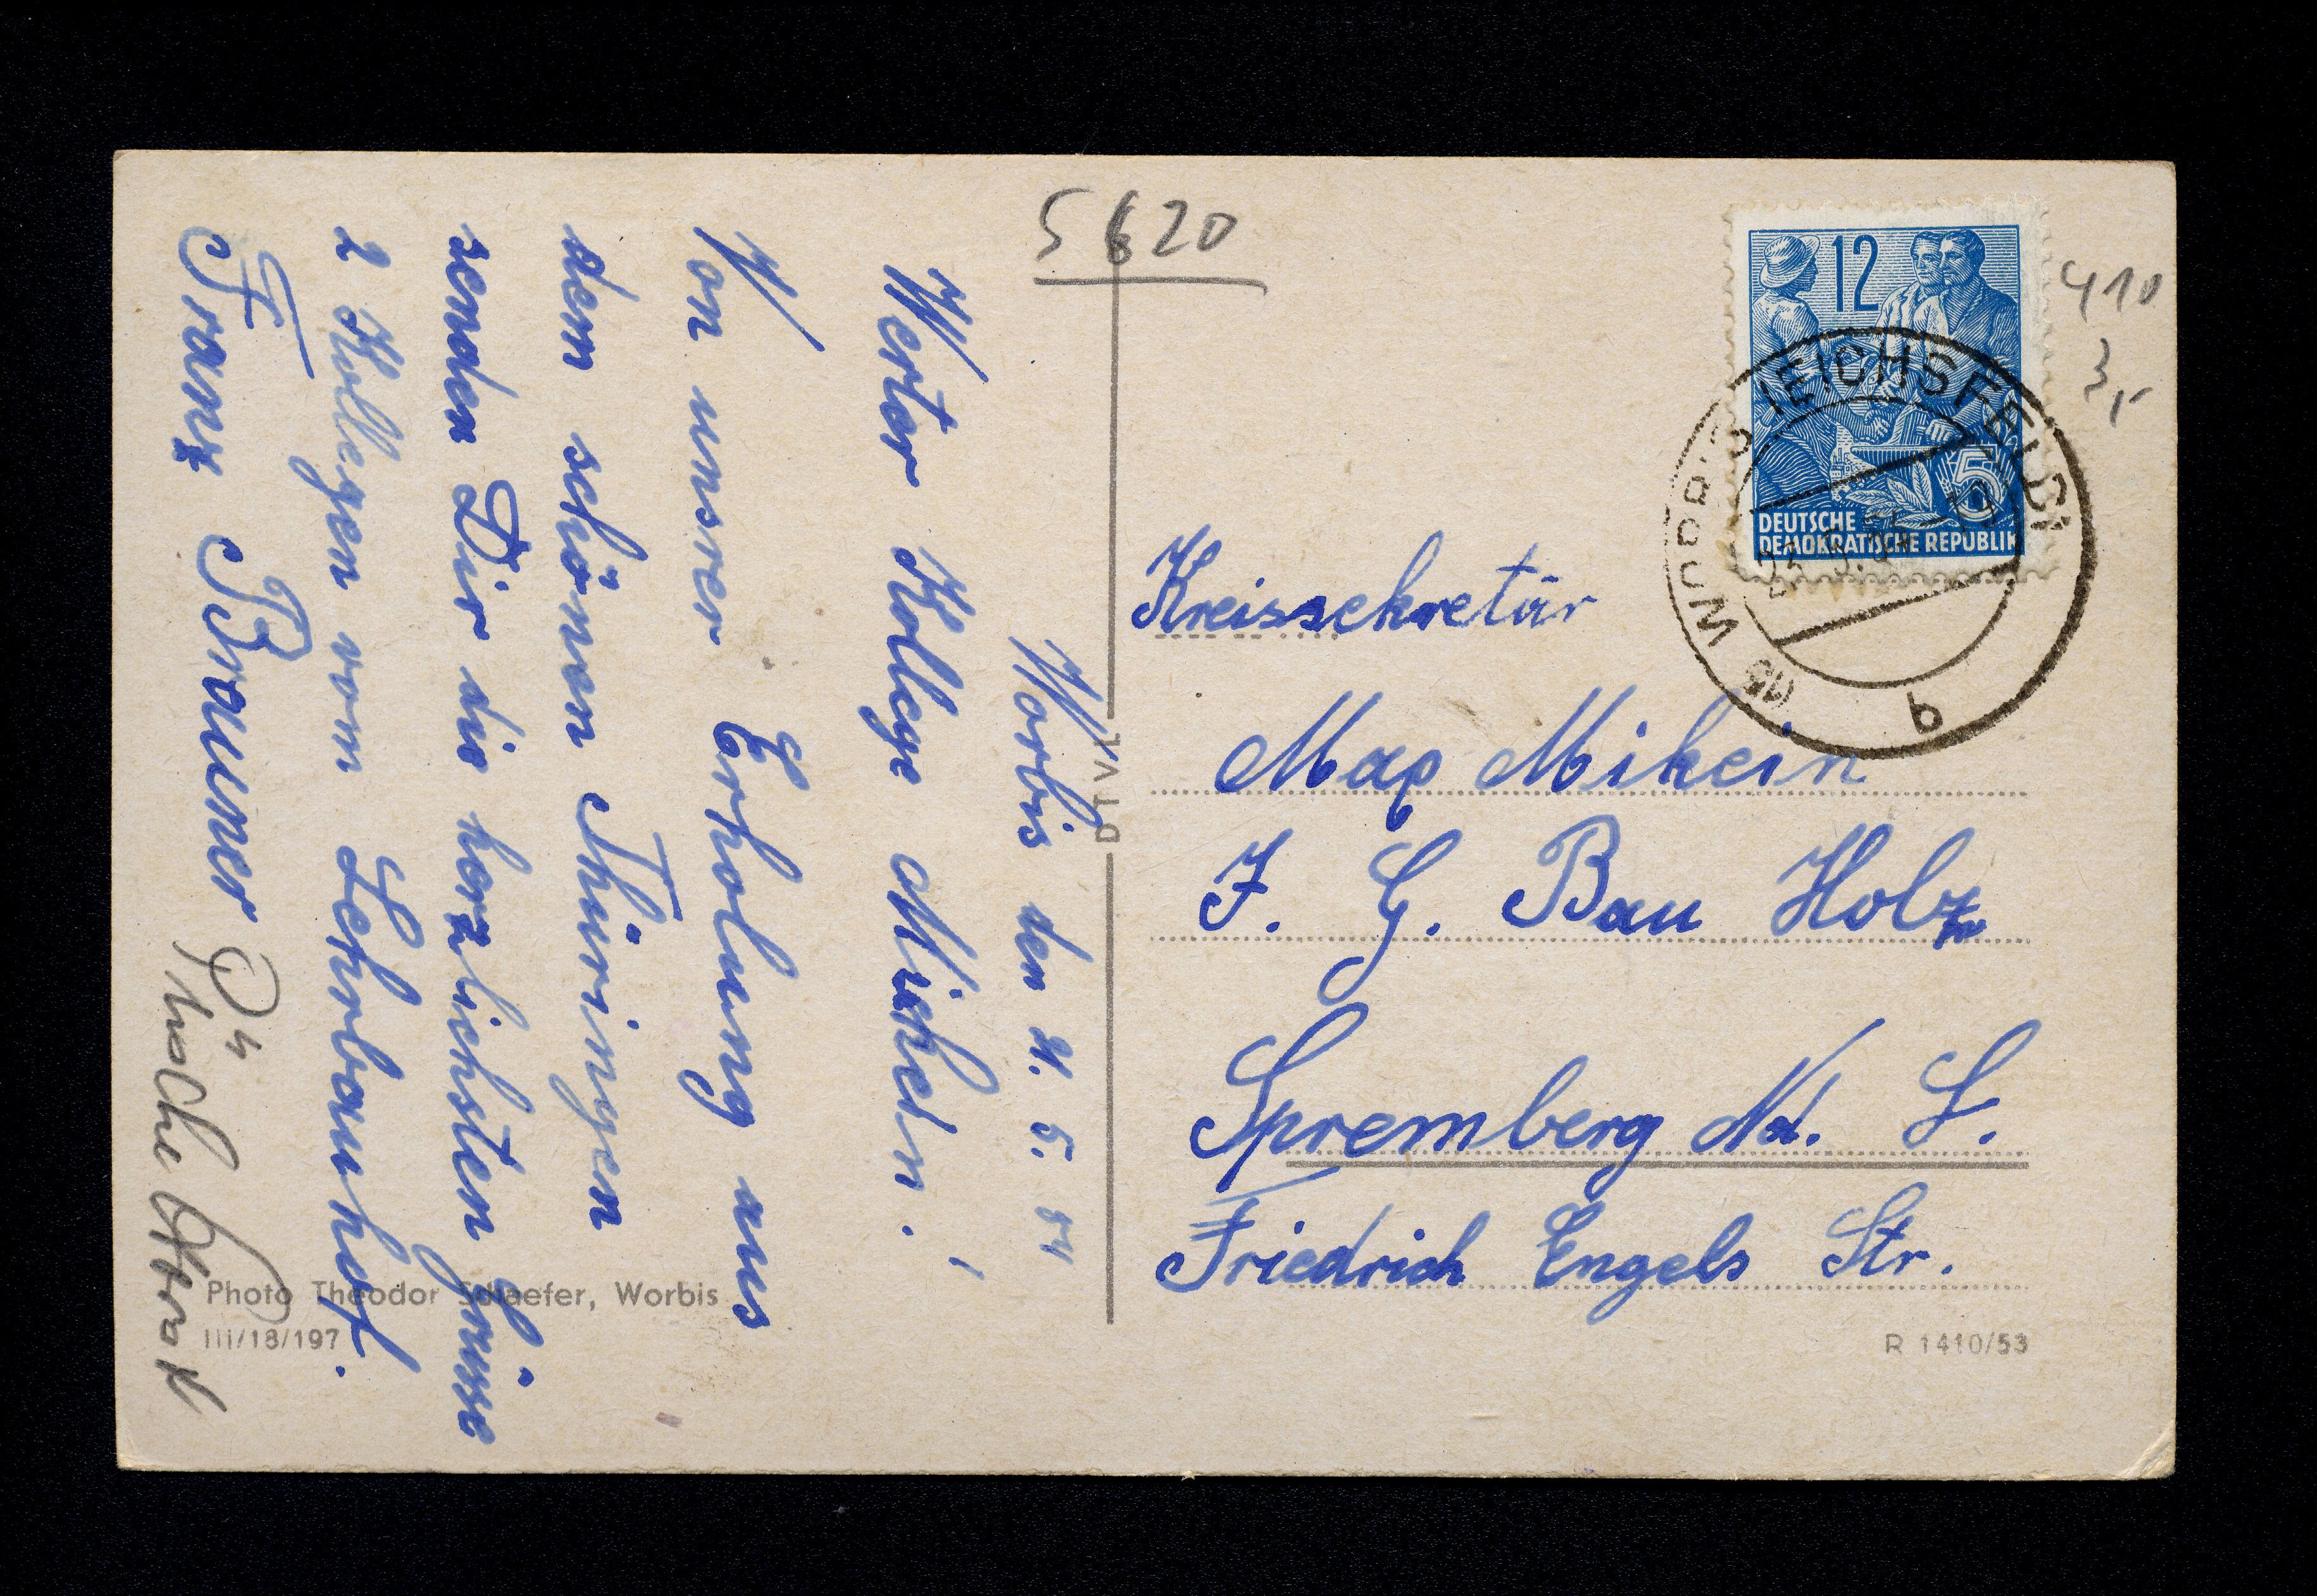 5620
Worbis den 21. 5. 54
Werter Kollege Mikein!
Von unsrer Erholung aus
dem schönen Thüringen
senden Dir die herzlichsten Grüsse
2 Kollegen vom Lehrbauhof.
Franz Brauner
Photo Theodor Schaefer, Worbis
III/18/197
DTVL
12
DEUTSCHE
DEMOKRATISCHE REPUBLIK
5
(15) WORBIS (EICHSFELD)
b
410
3,-
Kreissekretär
Max Mikein
I. G. Bau Holz
Spremberg Nd. L.
Friedrich Engels Str.
R 1410/53